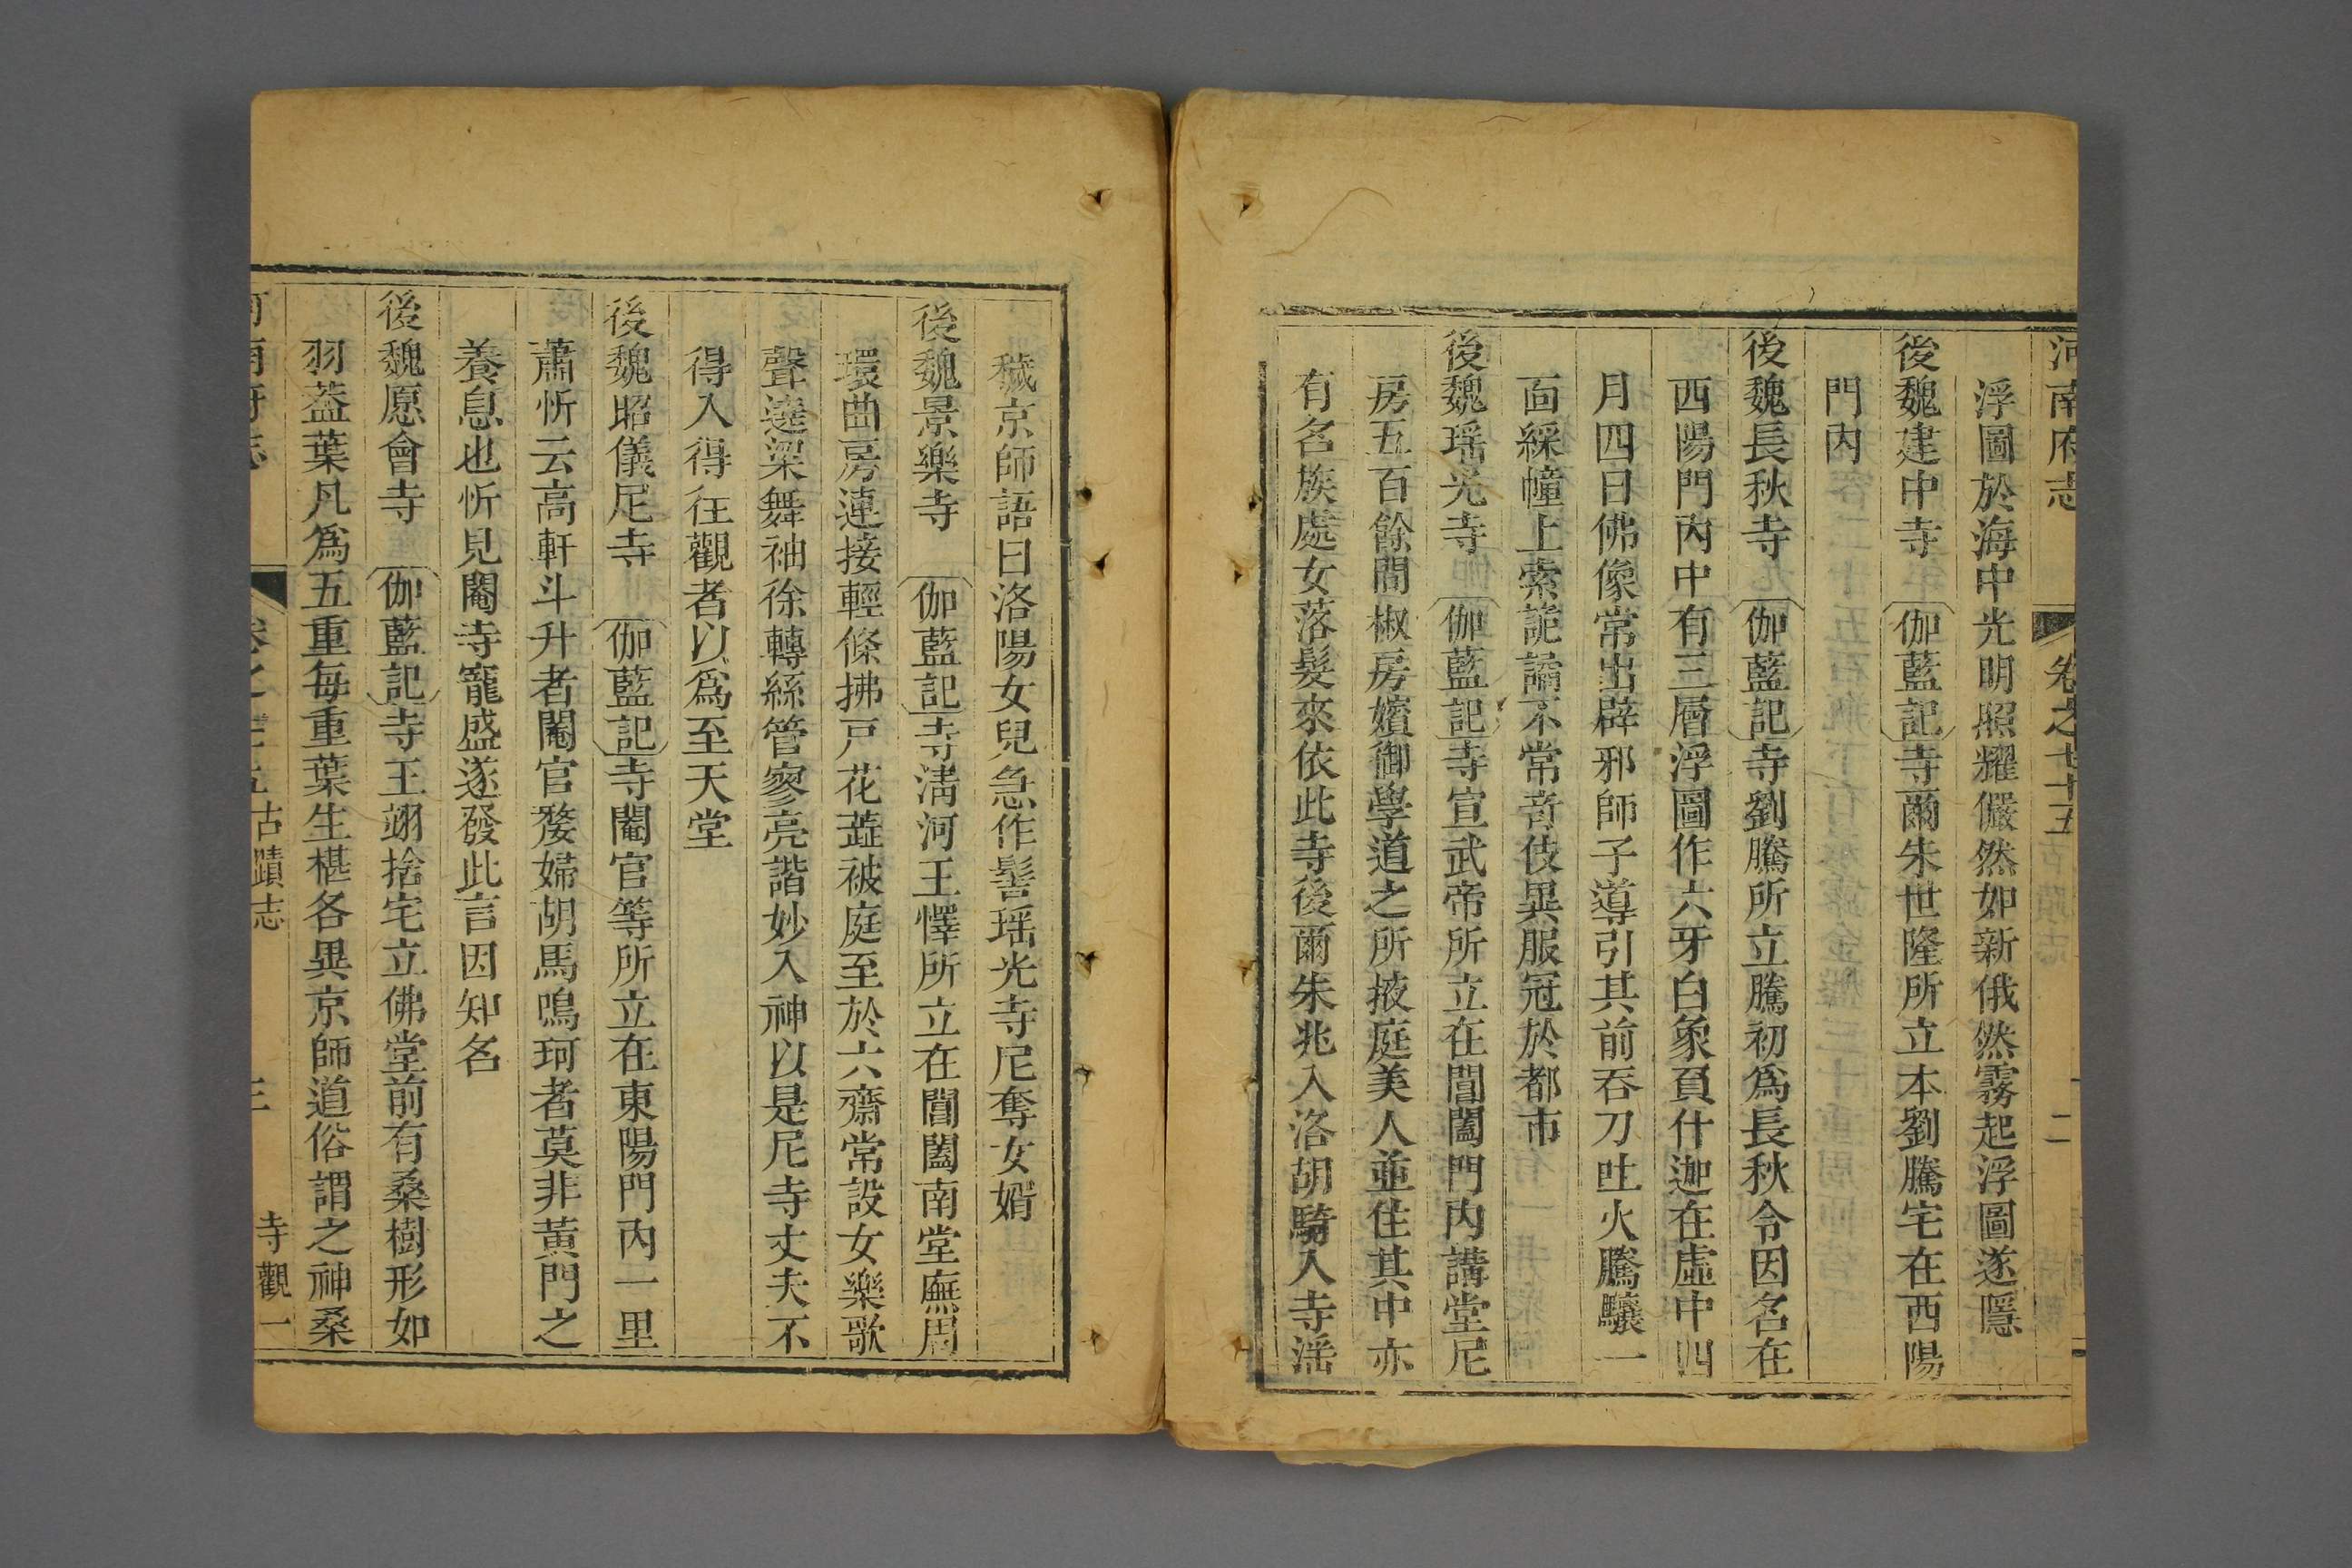 河南府志 卷之七十五 二
浮圖於海中光明照耀儼然如新俄然霧起浮圖遂隱
後魏建中寺 伽藍記寺爾朱世隆所立本劉騰宅在西陽
門內
後魏長秋寺 伽藍記寺劉騰所立騰初爲長秋令因名在
西陽門內中有三層浮圖作六牙白象負什迦在虛中四
月四日佛像常出辟邪師子導引其前吞刀吐火騰驤一
面綵幢上索詭譎不常竒伎異服冠於都市
後魏瑶光寺 伽藍記寺宣武帝所立在閶闔門內講堂尼
房五百餘間椒房嬪御學道之所掖庭美人並住其中亦
有名族處女落髮來依此寺後爾朱兆入洛胡騎入寺滛
穢京師語曰洛陽女兒急作髻瑶光寺尼奪女婿
後魏景樂寺 伽藍記寺淸河王懌所立在閶闔南堂廡周
環曲房連接輕條拂戸花蘂被庭至於六齋常設女樂歌
聲遶梁舞袖徐轉絲管寥亮諧妙入神以是尼寺丈夫不
得入得徃觀者以爲至天堂
後魏昭儀尼寺 伽藍記寺閹官等所立在東陽門內一里
蕭忻云高軒斗升者閹官嫠婦胡馬鳴珂者莫非黃門之
養息也忻見閹寺寵盛遂發此言因知名
後魏愿會寺 伽藍記寺王翊捨宅立佛堂前有桑樹形如
羽葢葉凡爲五重每重葉生椹各異京師道俗謂之神桑
古蹟志 三 寺觀一